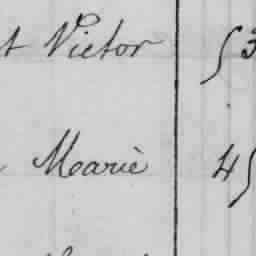 t Victor 53
Marie 45